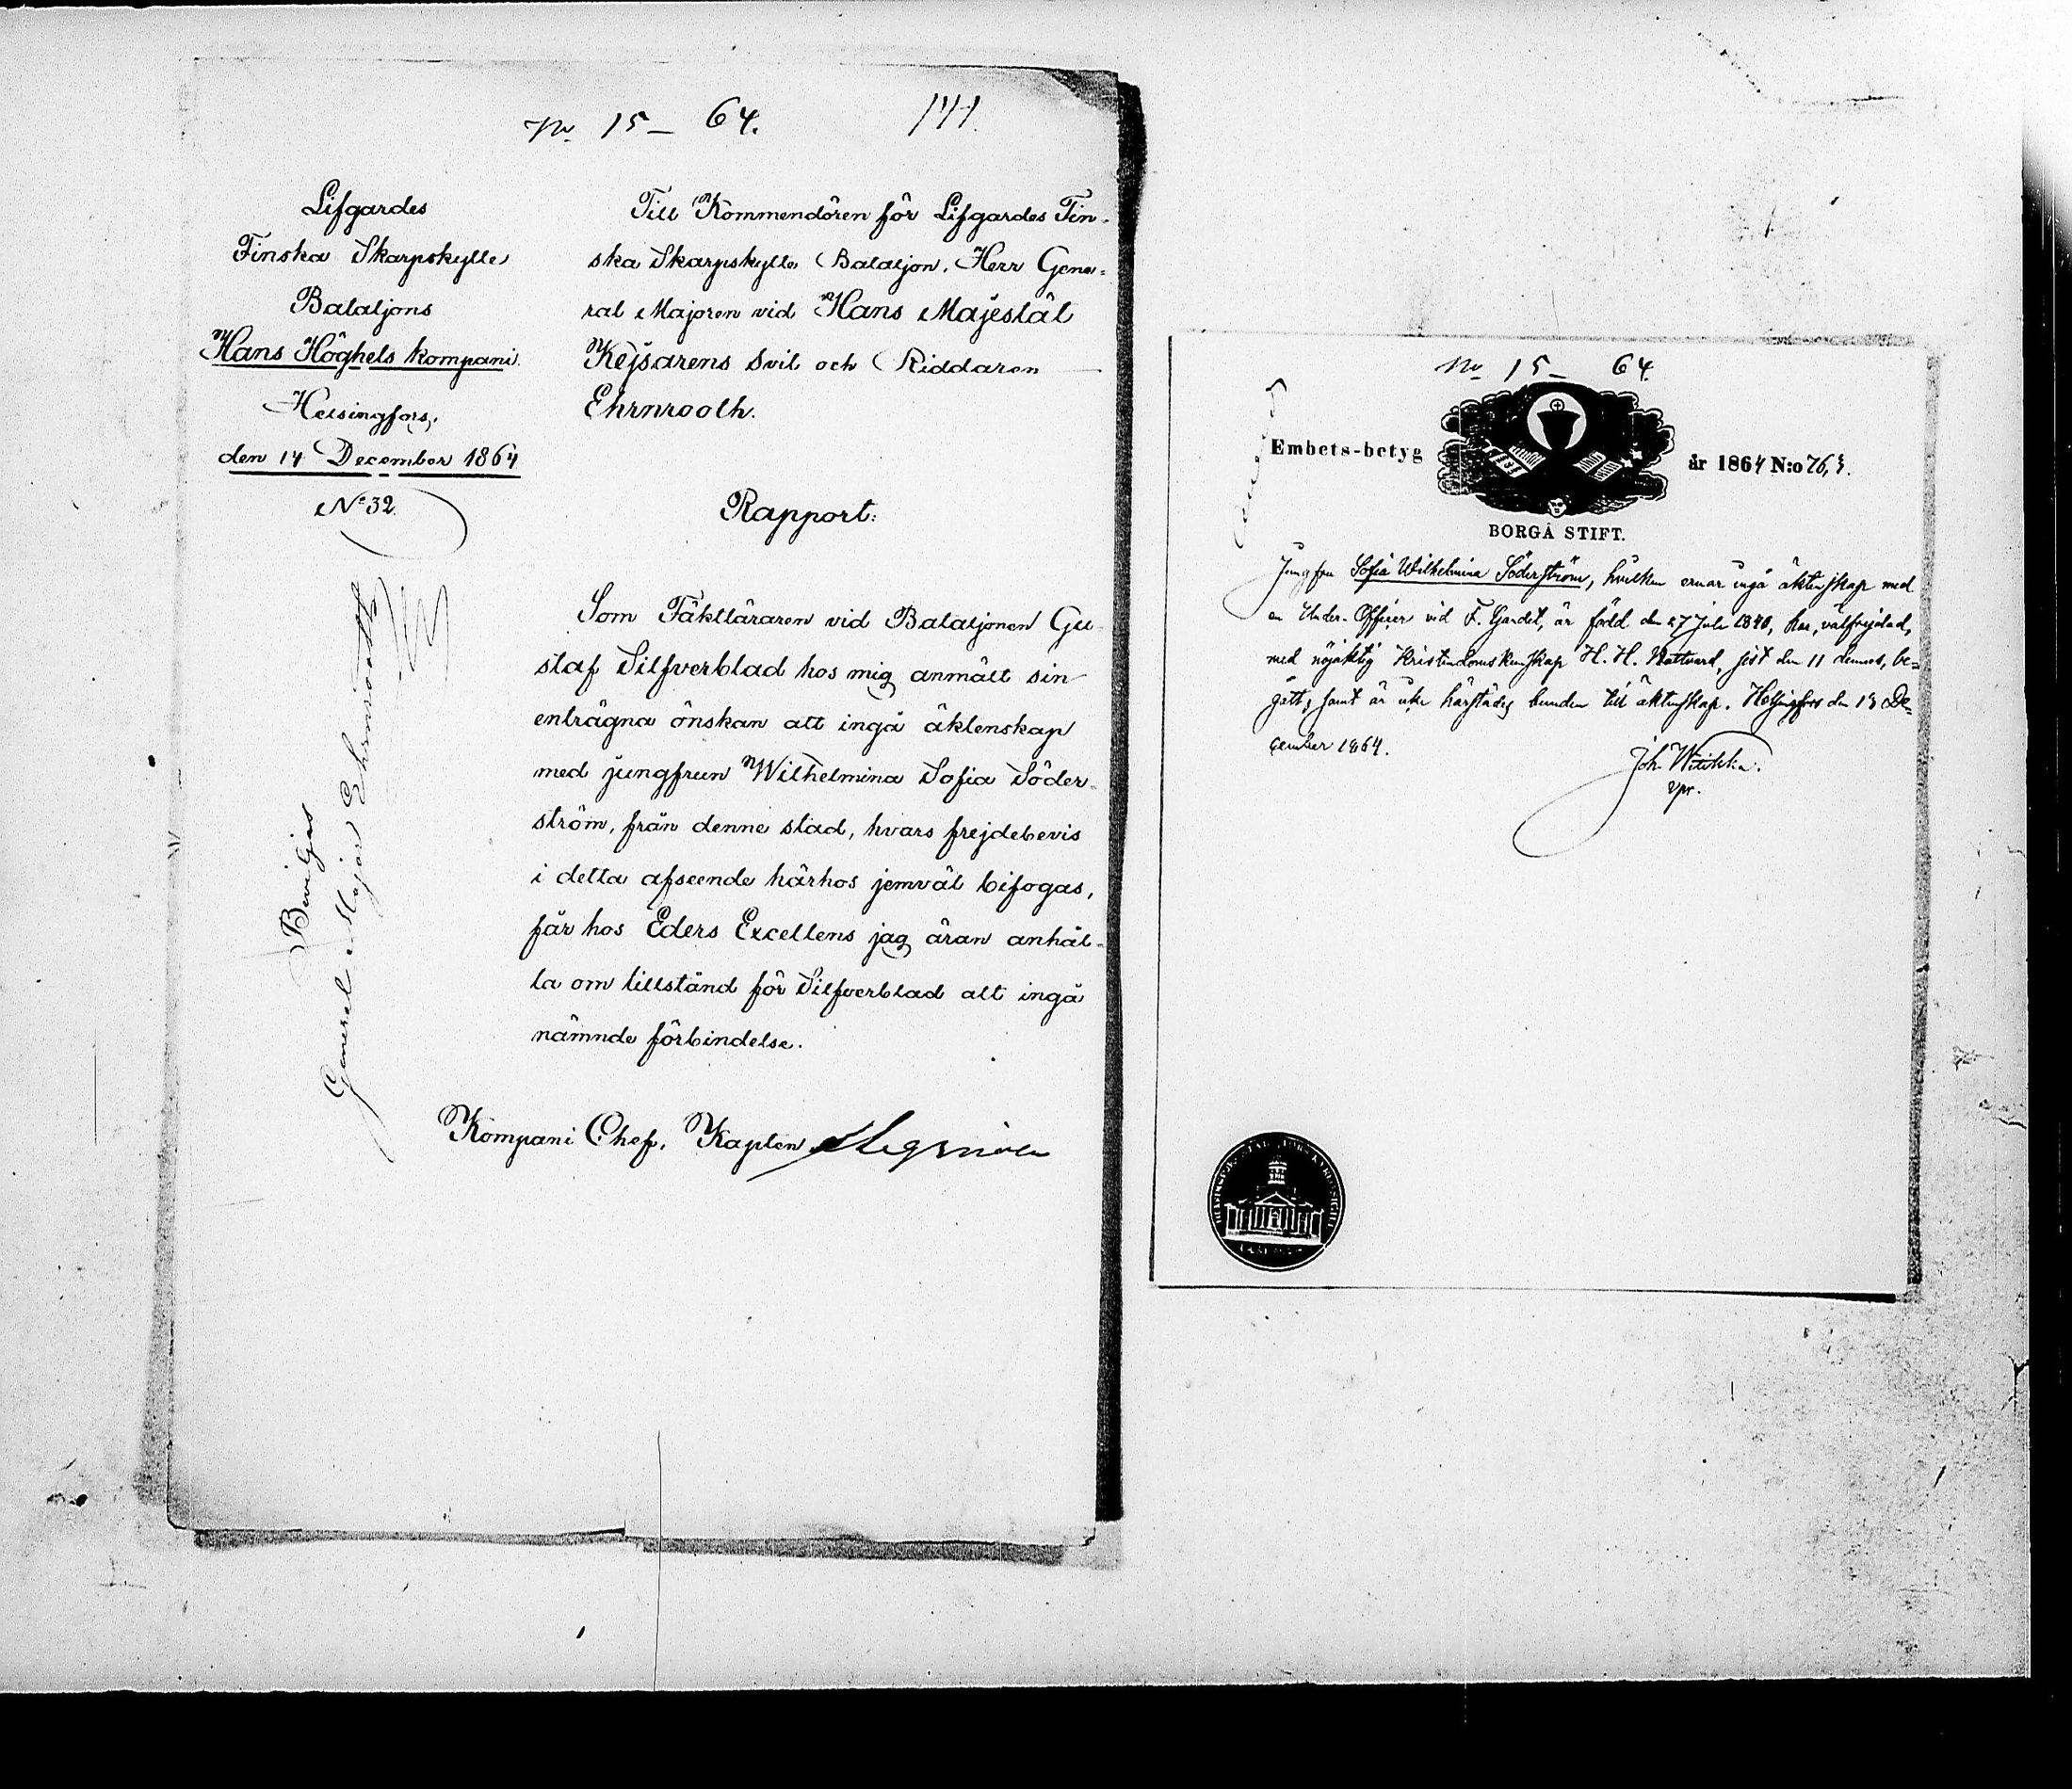 No 15 – 64.
Lifgardes
Finska Skarpskytte
Bataljons
Hans Höghets kompani.
Helsingfors,
den 14 December 1864
No 32.
Till Kommendören för Lifgardes Fin-
ska Skarpskytte Bataljon, Herr Gene-
ral Majoren vid Hans Majestät
Kejsarens Svit och Riddaren
Ehrnrooth.
Rapport:
Som Fäktläraren vid Bataljonen Gu-
staf Silfverblad hos mig anmält sin
enträgna önskan att ingå äktenskap
med jungfrun Wilhelmina Sofia Söder-
ström, från denne stad, hvars frejdebevis
i detta afseende härhos jemväl bifogas,
får hos Eders Excellens jag äran anhål-
la om tillstånd för Silfverblad att ingå
nämnde förbindelse.
Kompani Chef, Kapten
Beviljas
General Major Ehrnrooth
No 15 – 64.
Embets-betyg
år 1864 N:o 763.
BORGÅ STIFT.
Jungfru Sofia Wilhelmina Söderström, hvilken ernar ingå äktenskap med
en Under-Officer vid F. Gardet, är född den 27 Juli 1840, har, välfrejdad,
med nöjaktig Kristendomskunskap H. H. Nattvard, sist den 11 dennes, be-
gått, samt är icke härstädes bunden till äktenskap. Helsingfors den 13 De-
cember 1864.
Joh.
vpr.